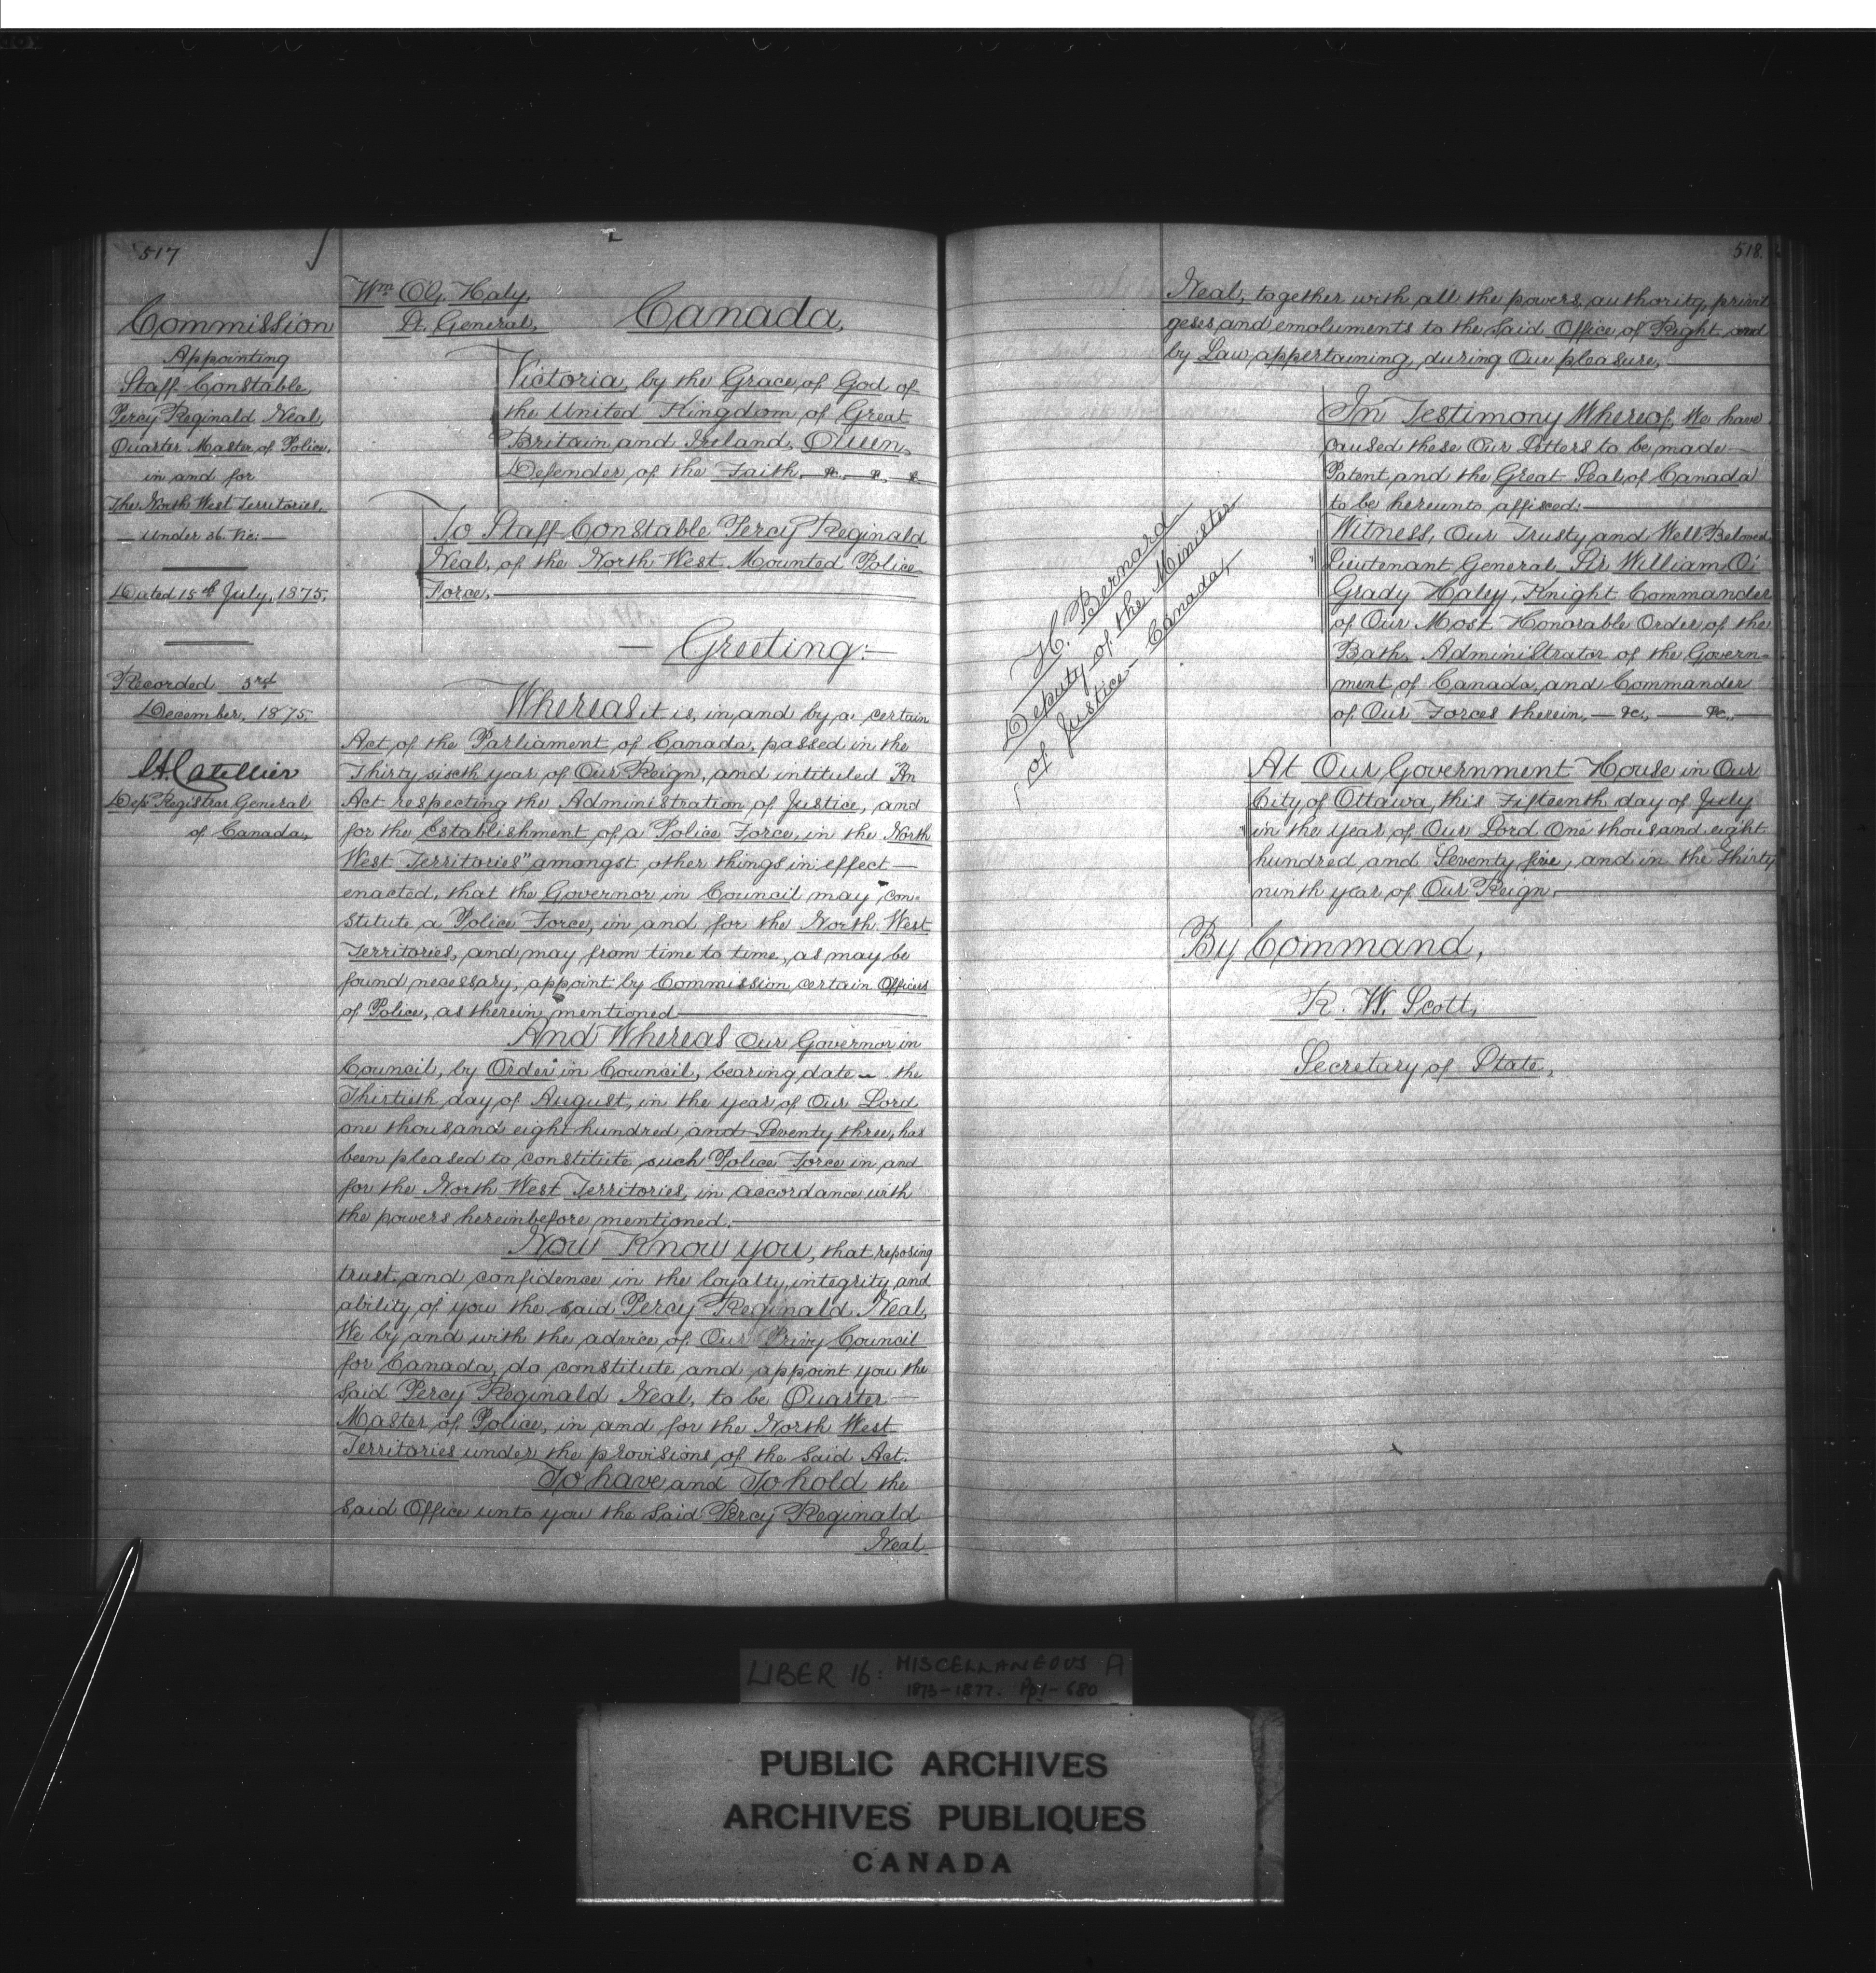 517
Commission
Appointing
Staff-Constable,
Percy Reginald Neal,
Quarter Master of Police,
in and for
The North West Territories,
— under 36. Vic: —
Dated 15th July, 1875.
Recorded 3rd
December, 1875.
Dep. Registrar General
of Canada,
Wm O'G. Haly,
Lt. General,
Canada,
Victoria, by the Grace of God of
the United Kingdom of Great
Britain and Ireland, Queen,
Defender of the Faith, &c, — &c, — &c
To Staff-Constable Percy Reginald
Neal, of the North-West Mounted Police
Force,
— Greeting:—
Whereas it is, in, and by a certain
Act of the Parliament of Canada, passed in the
Thirty sixth year of Our Reign, and intituled "An
Act respecting the Administration of Justice, and
for the Establishment of a Police Force, in the North
West Territories" amongst other things in effect —
enacted, that the Governor in Council may con-
stitute a Police Force, in and for the North West
Territories, and may from time to time, as may be
found necessary, appoint by Commission certain Officers
of Police, as therein mentioned
And Whereas Our Governor in
Council, by Order in Council, bearing date — the
Thirtieth day of August, in the year of Our Lord
one thousand eight hundred and Seventy three, has
been pleased to constitute such Police Force in and
for the North West Territories, in accordance with
the powers hereinbefore mentioned.
Now Know you, that reposing
trust and confidence in the loyalty, integrity and
ability of you the said Percy Reginald Neal,
We by and with the advice of Our Privy Council
for Canada, do constitute and appoint you the
said Percy Reginald Neal, to be Quarter —
Master of Police, in and for the North West
Territories under the provisions of the said Act.
To have and To hold the
said Office unto you the said Percy Reginald
Neal
518.
Neal, together with all the powers, authority, privil-
geses, and emoluments to the said Office of Right and
by Law appertaining, during Our pleasure,
In Testimony Whereof, We have
caused these Our Letters to be made —
Patent, and the Great Seal of Canada
to be hereunto affixed:—
Witness, Our Trusty and Well-Beloved
Lieutenant General Sir William O'
Grady Haley, Knight Commander
of Our Most Honorable Order of the
Bath, Administrator of the Govern-
ment of Canada, and Commander
of Our Forces therein, — &c, — &c, —
H. Bernard
Deputy of the Minister
of Justice – Canada,
At Our Government House in Our
City of Ottawa, this Fifteenth day of July
in the Year of Our Lord One thousand eight
hundred and Seventy five, and in the Thirty
ninth year of Our Reign.
By Command,
R. W. Scott,
Secretary of State,
LIBER 16: MISCELLANEOUS A
1873–1877. Pp 1–680
PUBLIC ARCHIVES
ARCHIVES PUBLIQUES
CANADA